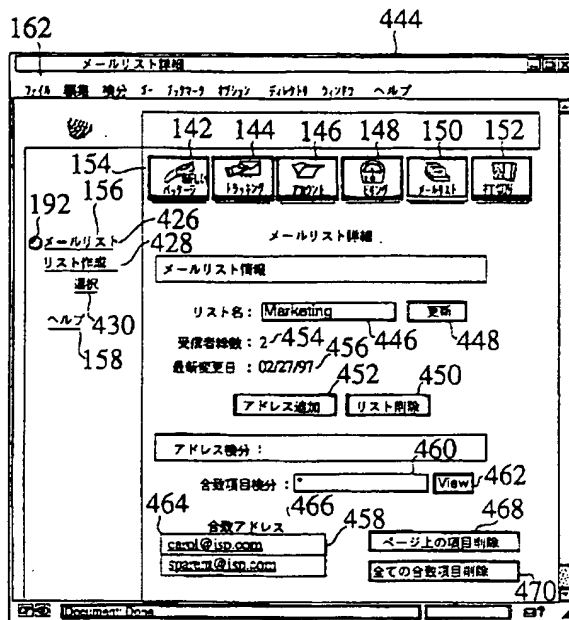 162
444
メールリスト詳細
ファイル 編集 検分 ゴー ブックマーク オプション ディレクトリ ウィンドウ ヘルプ
142 144 146 148 150 152
154
パッケージ トラッキング アカウント ビリング メールリスト
156
192
メールリスト 426
リスト作成 428
選択
430
ヘルプ
158
メールリスト詳細
メールリスト情報
リスト名: Marketing 更新
446 448
受信者総数: 2 454
最新変更日: 02/27/97 456
452 450
アドレス追加 リスト削除
アドレス検分:
460
合致項目検分: * View 462
464 466 458 468
合致アドレス
carol@isp.com
sparent@isp.com
ページ上の項目削除
全ての合致項目削除
470
Document: Done